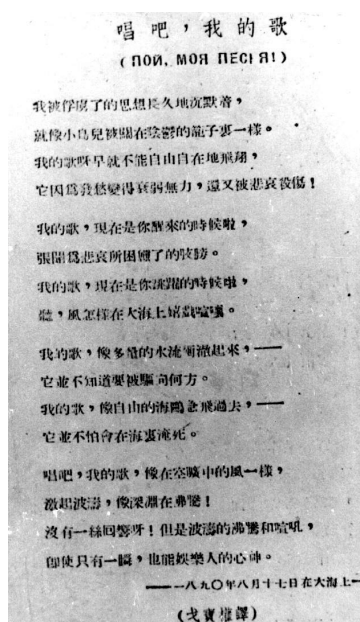 唱吧，我的歌
(ПОЙ, МОЯ ПЕСНЯ!)
我被俘虜了的思想長久地沉默着，
就像小鳥兒被關在陰鬱的籠子裏一樣。
我的歌呀早就不能自由自在地飛翔，
它因爲我愁變得衰弱無力，還又被悲哀殺傷！
我的歌，現在是你醒來的時候啦，
張開爲悲哀所困頓了的肢膀。
我的歌，現在是你流蹓的時候啦，
聽，風怎樣在大海上嬉戲喧嚷。
我的歌，像多量的水流衝激起來，——
它並不知道要被驅向何方。
我的歌，像自由的海鷗急飛過去，——
它並不怕會在海裏淹死。
唱吧，我的歌，像在空曠中的風一樣，
激起波濤，像深淵在沸騰！
沒有一絲回響呀！但是波濤的沸騰和喧吼，
即使只有一瞬，也能娛樂人的心神。
——一八九〇年八月十七日在大海上—
(戈寶權譯)